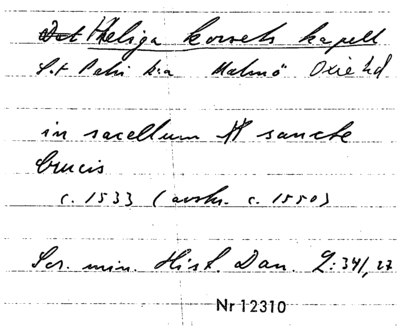 Heliga korsets kapell
S:t Petri k:a Malmö Oxie hd
in sacellum sancte
Crucis
c. 1533 (avskr. c. 1550)
Scr. min. Hist. Dan. 2:341, 27
Nr 12310